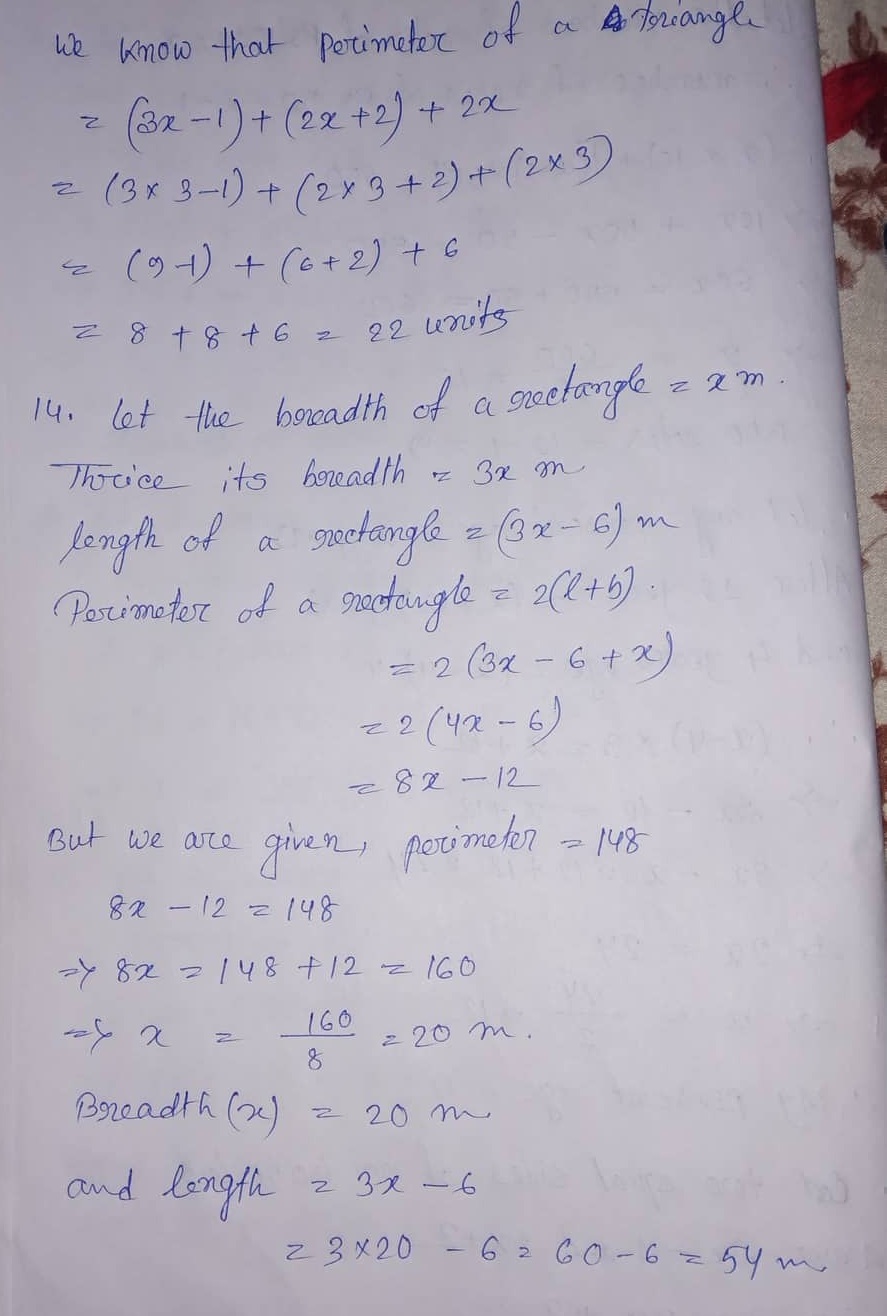 We know that perimeter of a triangle
= (3x-1) + (2x+2) + 2x
= (3×3-1) + (2×3+2) + (2×3)
= (9-1) + (6+2) + 6
= 8 + 8 + 6 = 22 units
14. let the breadth of a rectangle = x m.
Thrice its breadth = 3x m
length of a rectangle = (3x-6) m
Perimeter of a rectangle = 2(l+b).
= 2 (3x - 6 + x)
= 2 (4x - 6)
= 8x - 12
But we are given, perimeter = 148
8x - 12 = 148
=> 8x = 148 + 12 = 160
=> x = 160/8 = 20 m.
Breadth (x) = 20 m
and length = 3x - 6
= 3×20 - 6 = 60 - 6 = 54 m